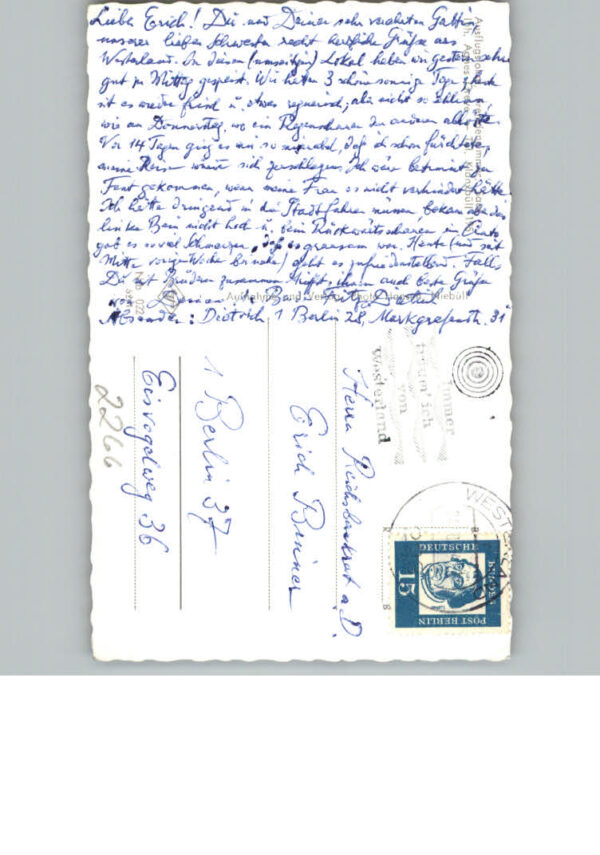 Lieber Erich! Dir und Deiner sehr verehrten Gattin
unserer lieben Schwester recht herzliche Grüße aus
Westerland. In diesem (umseitigen) Lokal haben wir gestern sehr
gut zu Mittag gespeist. Wir hatten 3 schöne sonnige Tage, heute
ist es wieder frisch u. etwas regnerisch; aber nicht so schlimm
wie am Donnerstag, wo ein Regenschauer den anderen ablöste.
Vor 14 Tagen ging es mir so miserabel, daß ich schon fürchtete
meine Reise würde sich zerschlagen. Ich wäre bestimmt zu
gekommen, wenn meine Frau es nicht verhindert hätte
Ich hätte dringend in die Stadt fahren müssen, bekam aber das
linke Bein nicht hoch u. beim Rückwärtsscharen
gab es so viel Schmerzen, daß es grausam war. Heute (und seit
Mitte voriger Woche beinahe) geht es zufriedenstellend. Falls
Du mit Brüdern zusammen triffst, ihnen auch beste Grüße
von Deinem Fritz Dietrich
Absender: Dietrich, 1 Berlin 28, Markgrafenstr. 31
Aufnahme und Verlag Photo Niebüll
Ausflugslokal
Inh. Agnes
Herrn Reichsbankrat a. D.
Erich Briner
1 Berlin 37
Eisvogelweg 36
2266
Immer
ich
von
Westerland
WESTERLAND
DEUTSCHE
POST BERLIN
15